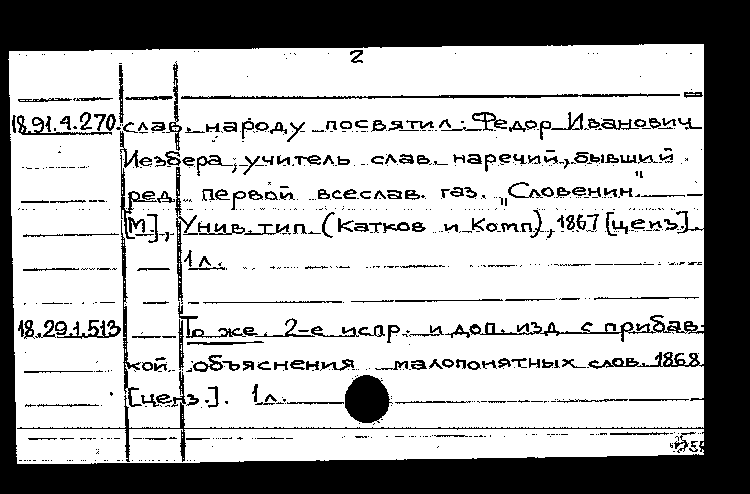 2
18.91.4.270. слав. народу посвятил: Федор Иванович
Иезбера, учитель слав. наречий, бывший
ред. первой всеслав. газ. "Словенин"
[М.], Унив. тип. (Катков и Комп), 1867 [ценз.].
1 л.
18.29.1.513 То же. 2-е испр. и доп. изд. с прибав-
кой объяснения малопонятных слов. 1868
[ценз.]. 1 л.